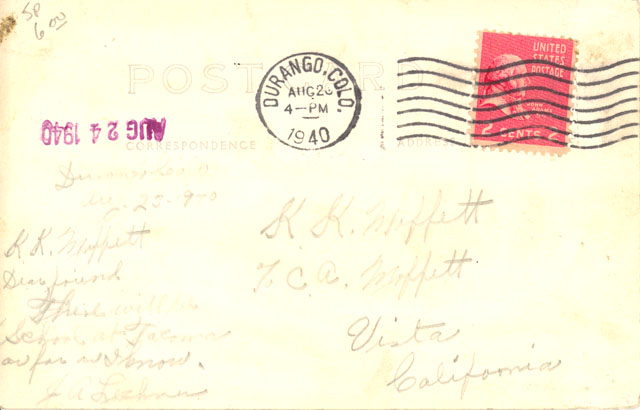 SP
6.00
POST CARD
DURANGO, COLO.
AUG 23
4-PM
1940
UNITED
STATES
POSTAGE
JOHN
ADAMS
2 CENTS 2
AUG 24 1940
CORRESPONDENCE
ADDRESS
23-1940
K. K. Moffett
Dear friend
There will be
School at Tacoma
as far as I know.
K. K. Moffett
% C. A. Moffett
Vista
California